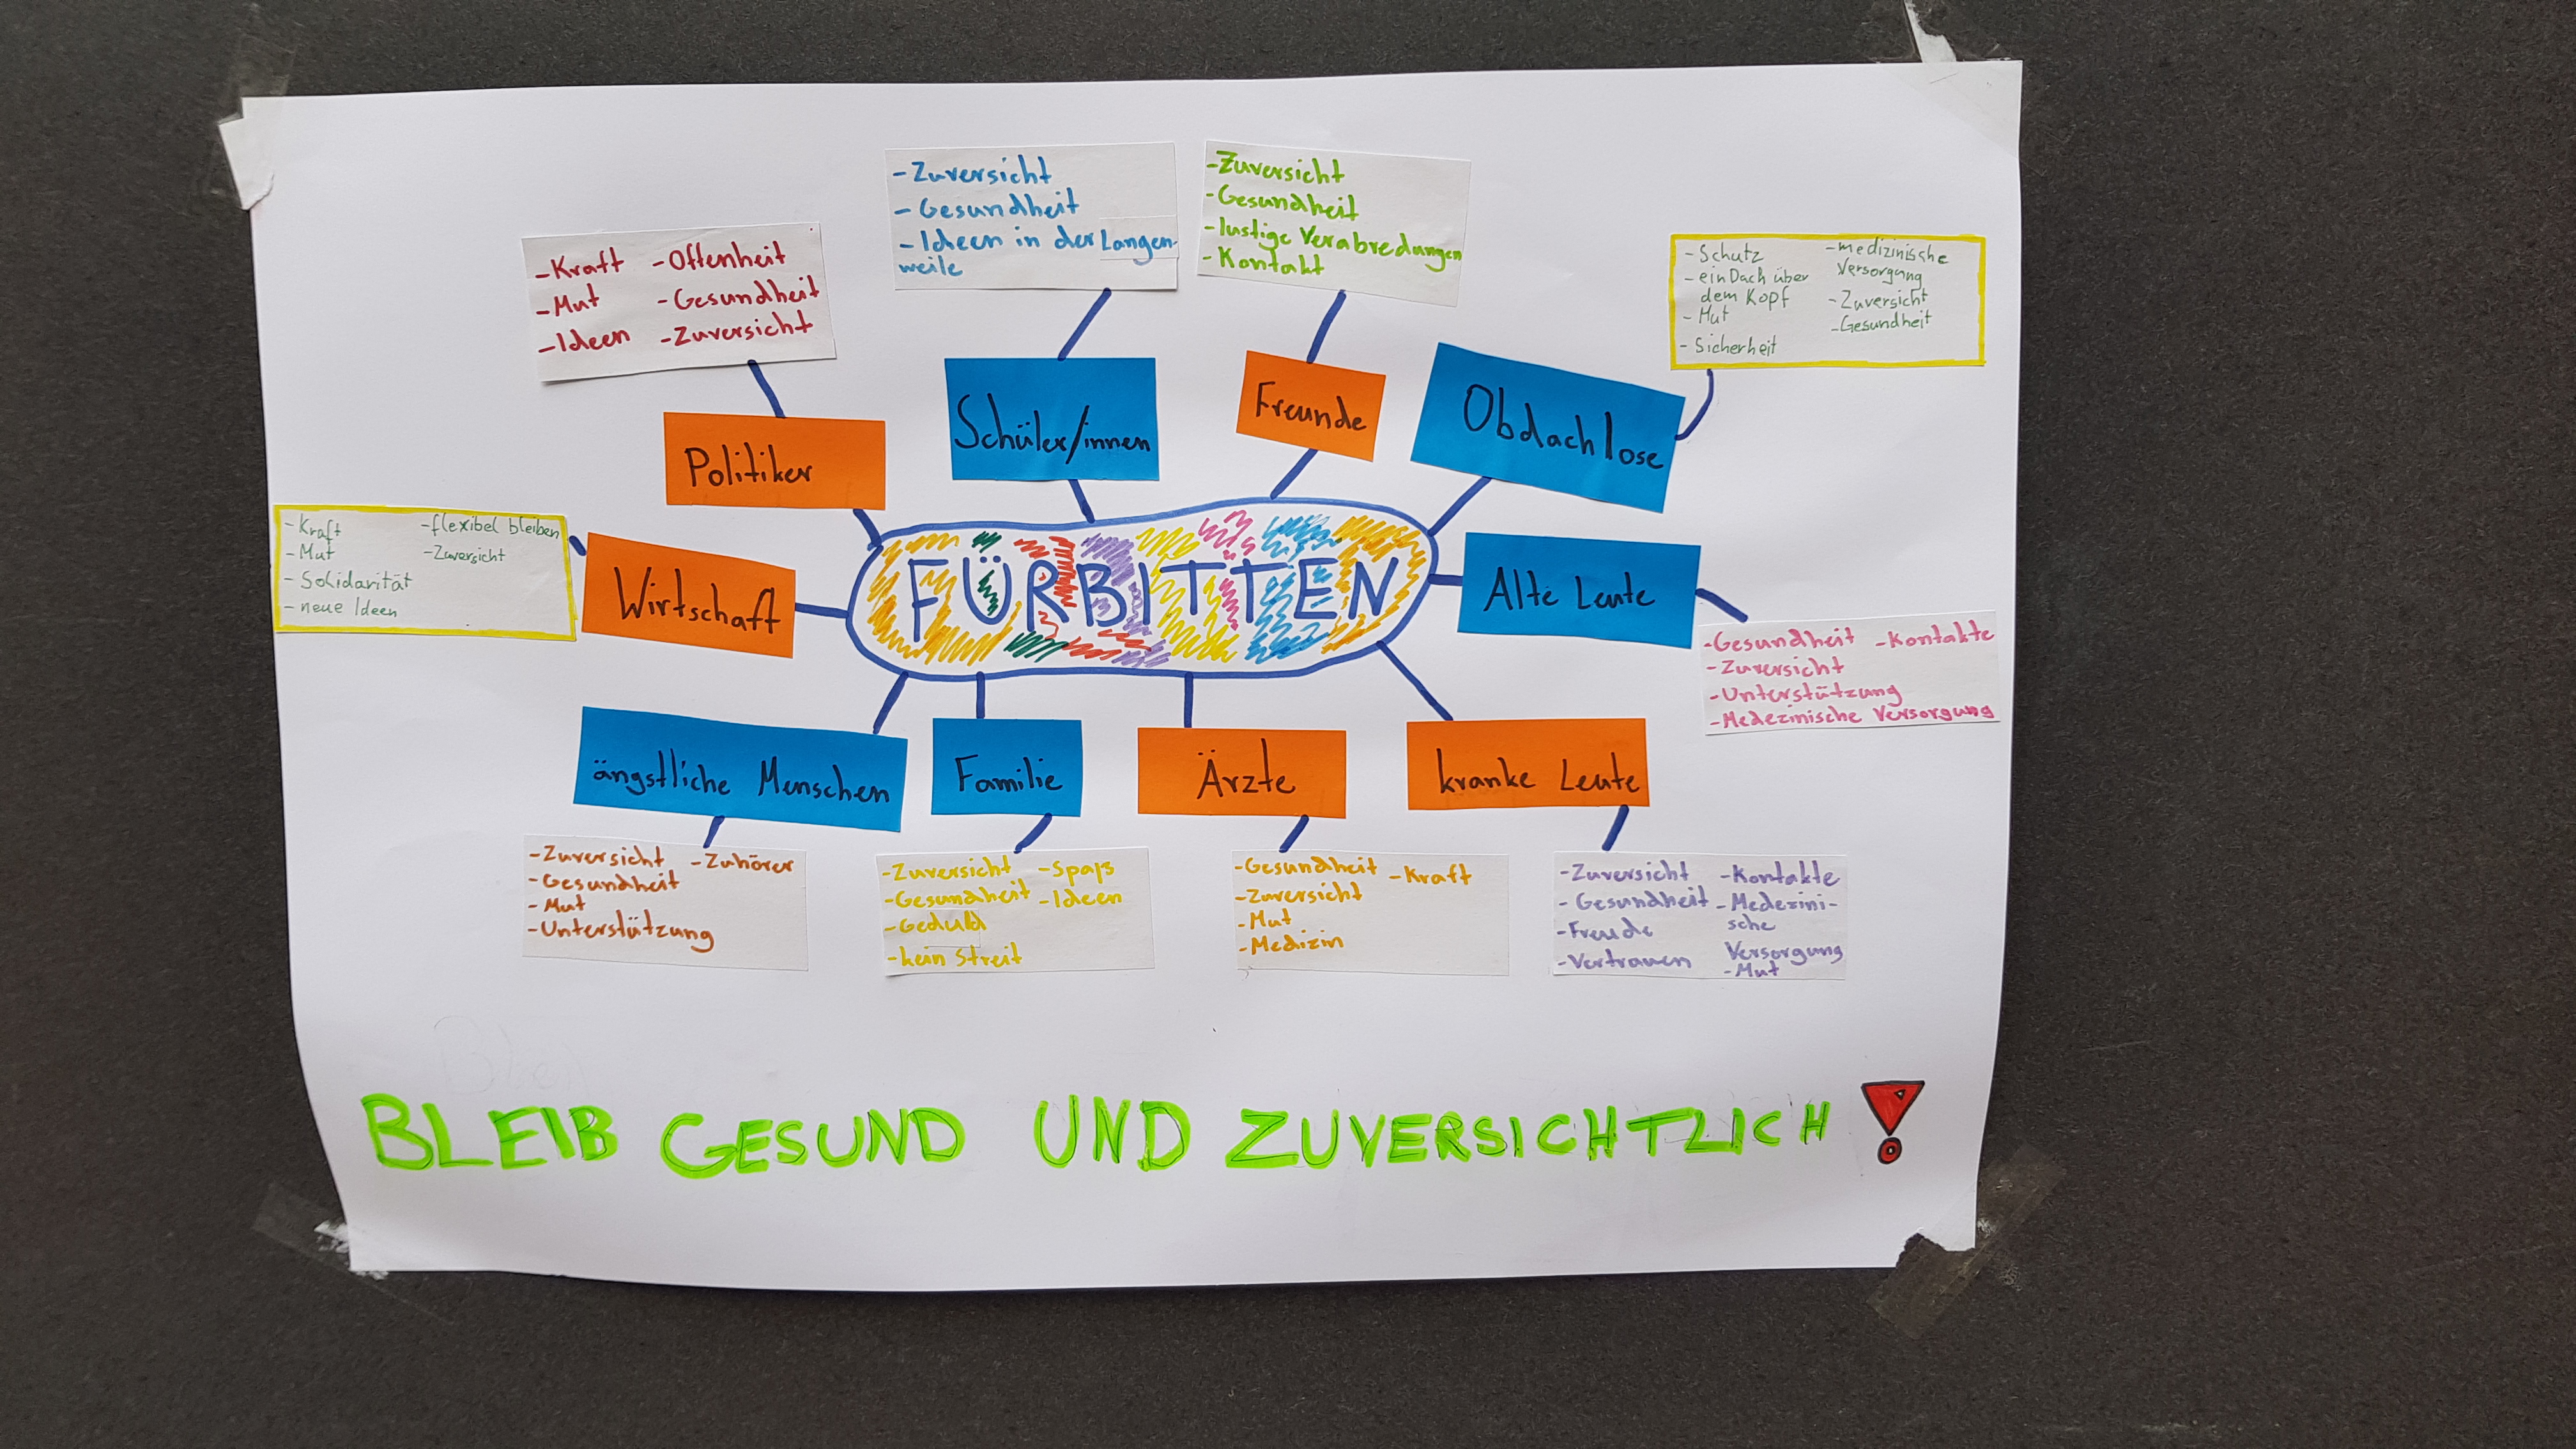 - Zuversicht
- Gesundheit
- Ideen in der Langen-
weile
- Zuversicht
- Gesundheit
- lustige Verabredungen
- Kontakt
- Kraft - Offenheit
- Mut - Gesundheit
- Ideen - Zuversicht
- Schutz
- ein Dach über
dem Kopf
- Mut
- Sicherheit
- medizinische
Versorgung
- Zuversicht
- Gesundheit
Politiker
Schüler/innen
Freunde
Obdachlose
- Kraft
- Mut
- Solidarität
- neue Ideen
- flexibel bleiben
- Zuversicht
Wirtschaft
FÜRBITTEN
Alte Leute
- Gesundheit - Kontakte
- Zuversicht
- Unterstützung
- Medezinische Versorgung
ängstliche Menschen
Familie
Ärzte
kranke Leute
- Zuversicht - Zuhörer
- Gesundheit
- Mut
- Unterstützung
- Zuversicht - Spaß
- Gesundheit - Ideen
- Geduld
- kein Streit
- Gesundheit - Kraft
- Zuversicht
- Mut
- Medizin
- Zuversicht
- Gesundheit
- Freude
- Vertrauen
- Kontakte
- Medezini-
sche
Versorgung
- Mut
BLEIB GESUND UND ZUVERSICHTLICH!